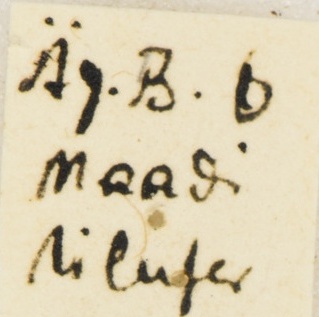 Äg. B. b
Maadi
Nilufer